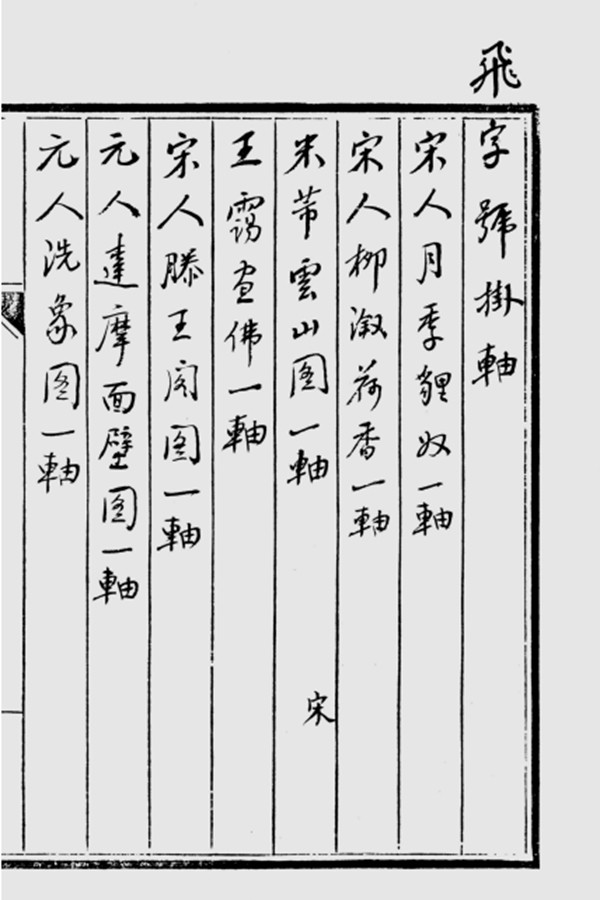 飛字號掛軸
宋人月季貍奴一軸
宋人柳溆荷香一軸
米芾雲山图一軸 宋
王靄畫佛一軸
宋人滕王阁图一軸
元人達摩面壁图一軸
元人洗象图一軸